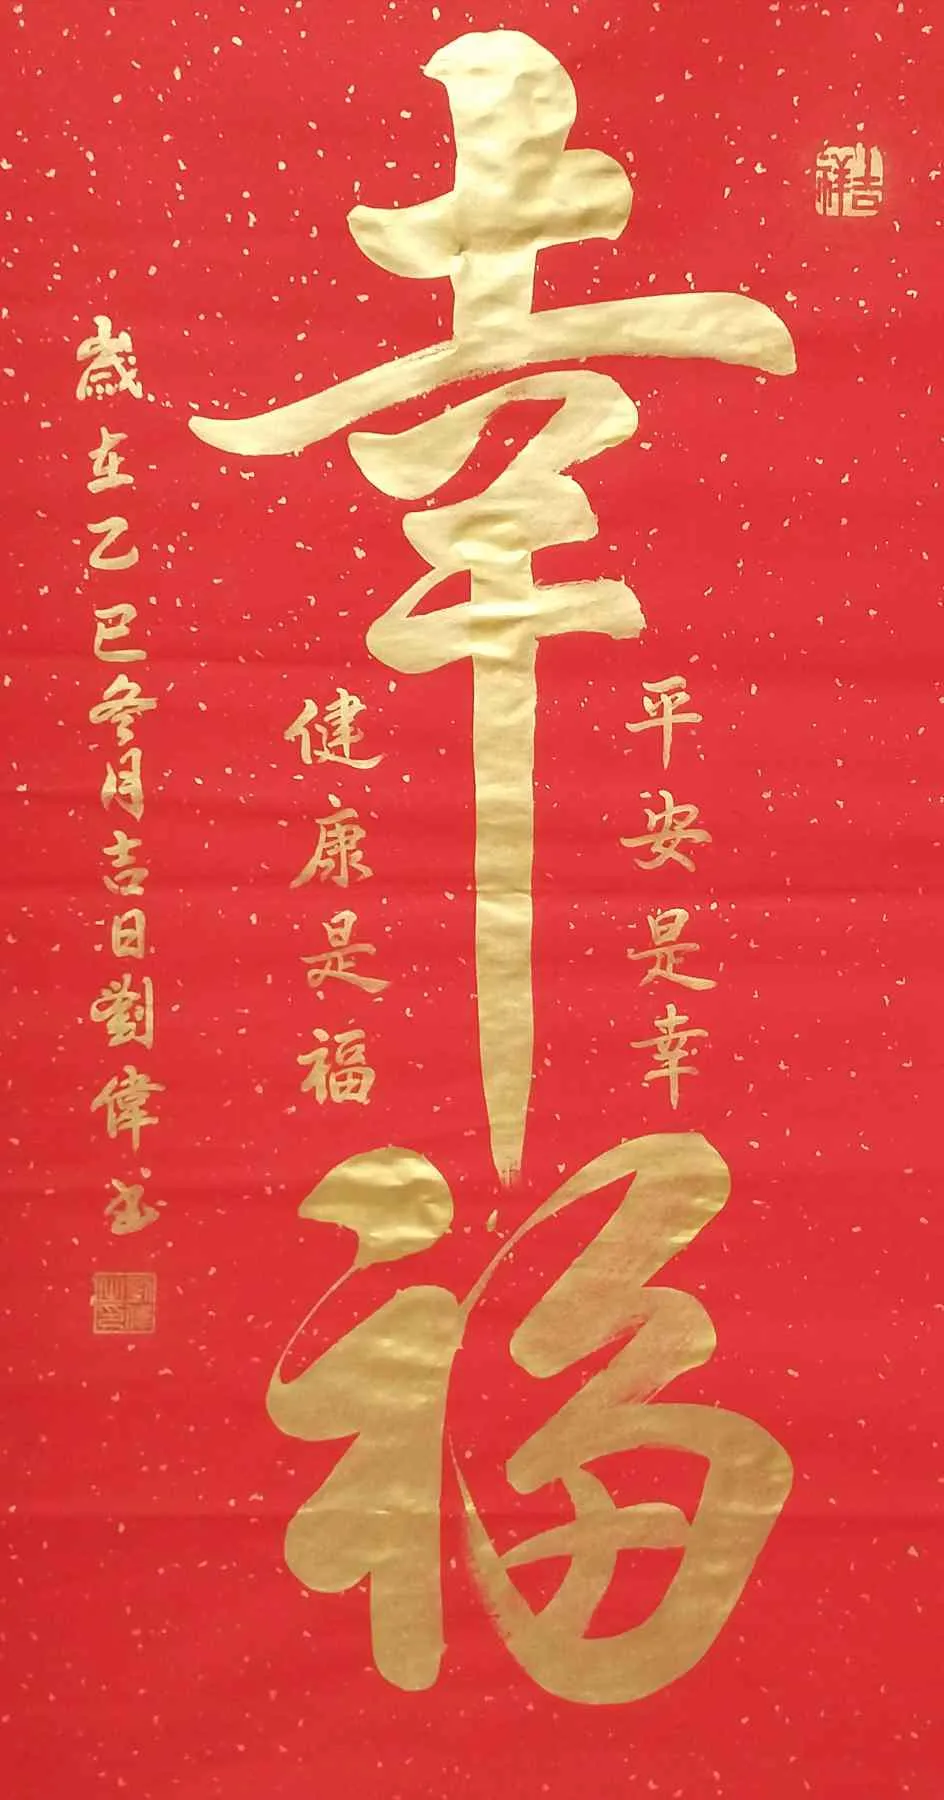 幸福
平安是幸
健康是福
歲在乙巳冬月吉日劉偉書
吉祥